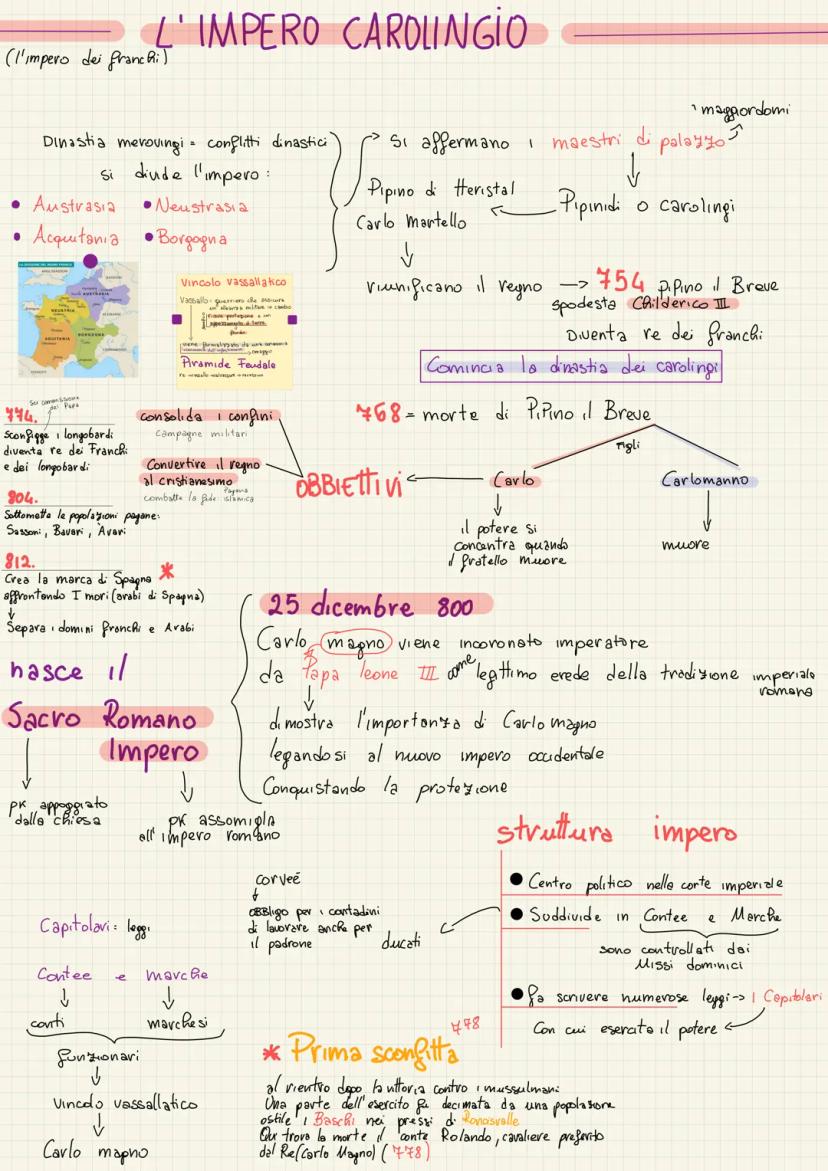 L'IMPERO CAROLINGIO
(l'impero dei franchi)
Dinastia merovingi = conflitti dinastici
si divide l'impero:
Austrasia
Neustrasia
Acquitania
Borgogna
Si affermano i maestri di palazzo
maggiordomi
Pipinidi o carolingi
Pipino di Heristal
Carlo Martello
riunificano il regno → 754 pipino il Breve
spodesta Childerico III
Diventa re dei franchi
Comincia la dinastia dei carolingi
AUSTRASIA
NEUSTRIA
AQUITANIA
BORGOGNA
Vincolo vassallatico
Vassallo: guerriero che
Piramide Feudale
768 = morte di Pipino il Breve
figli
Carlo
Carlomanno
il potere si
concentra quando
il fratello muore
muore
OBBIETTIVI
consolida i confini
campagne militari
Convertire il regno
al cristianesimo
combatte la fede pagana
islamica
774.
Su commissione
del Papa
sconfigge i longobardi
diventa re dei Franchi
e dei longobardi
804.
Sottomette le popolazioni pagane:
Sassoni, Bavari, Avari
812.
Crea la marca di Spagna *
affrontando I mori (arabi di Spagna)
↓
Separa i domini franchi e Arabi
25 dicembre 800
Carlo magno viene incoronato imperatore
da Papa leone III come legittimo erede della tradizione imperiale
romana
dimostra l'importanza di Carlo magno
legandosi al nuovo impero occidentale
Conquistando la protezione
nasce il
Sacro Romano
Impero
pk appoggiato
dalla chiesa
pk assomiglia
all'impero romano
struttura impero
Centro politico nella corte imperiale
Suddivide in Contee e Marche
sono controllati dai
Missi dominici
ducati
fa scrivere numerose leggi → I Capitolari
Con cui esercita il potere
corveé
↓
OBBligo per i contadini
di lavorare anche per
il padrone
Capitolari: leggi
Contee e marche
conti
marchesi
funzionari
vincolo vassallatico
Carlo magno
778
* Prima sconfitta
al rientro dopo la vittoria contro i mussulmani
Una parte dell'esercito fu decimata da una popolazione
ostile i Baschi nei pressi di Roncisvalle
Qui trova la morte il conte Rolando, cavaliere preferito
dal Re (Carlo Magno) (778)